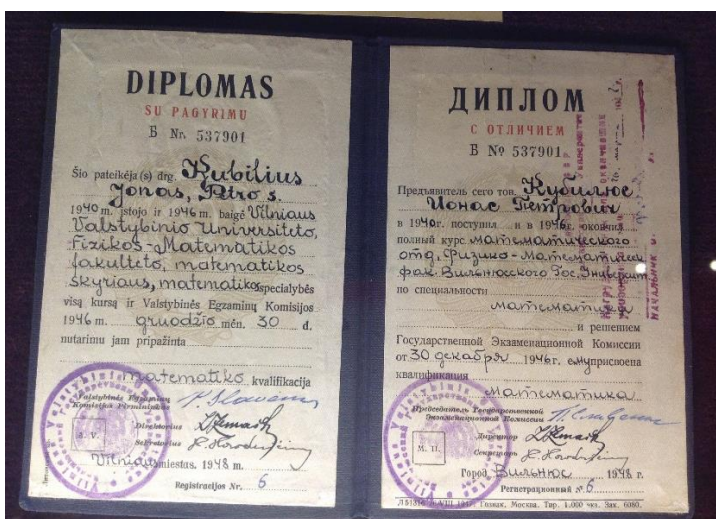 DIPLOMAS
SU PAGYRIMU
Б Nr. 537901
Šio pateikėja(s) drg. Kubilius
Jonas, Petro s.
1940 m. įstojo ir 1946 m. baigė Vilniaus
Valstybinio Universiteto,
Fizikos-Matematikos
fakulteto, matematikos
skyriaus, matematikos specialybės
visą kursą ir Valstybinės Egzaminų Komisijos
1946 m. gruodžio mėn. 30 d.
nutarimu jam pripažinta
matematiko kvalifikacija
Valstybinės Egzaminų
Komisijos Pirmininkas
Direktorius
Sekretorius
A. V.
Vilniaus miestas. 1948 m.
Registracijos Nr. 6
ДИПЛОМ
С ОТЛИЧИЕМ
Б № 537901
Предъявитель сего тов. Кубилюс
Йонас Петрович
в 1940 г. поступил и в 1946 г. окончил
полный курс математического
отд. Физико-Математическ.
фак. Вильнюсского Гос. Университ.
по специальности
математика
и решением
Государственной Экзаменационной Комиссии
от 30 декабря 1946 г. ему присвоена
квалификация
математика
Председатель Государственной
Экзаменационной Комиссии
Директор
Секретарь
М. П.
Город Вильнюс 1948 г.
Регистрационный № 6
Гознак. Москва. Тир. 1.000 экз. Зак. 6080.